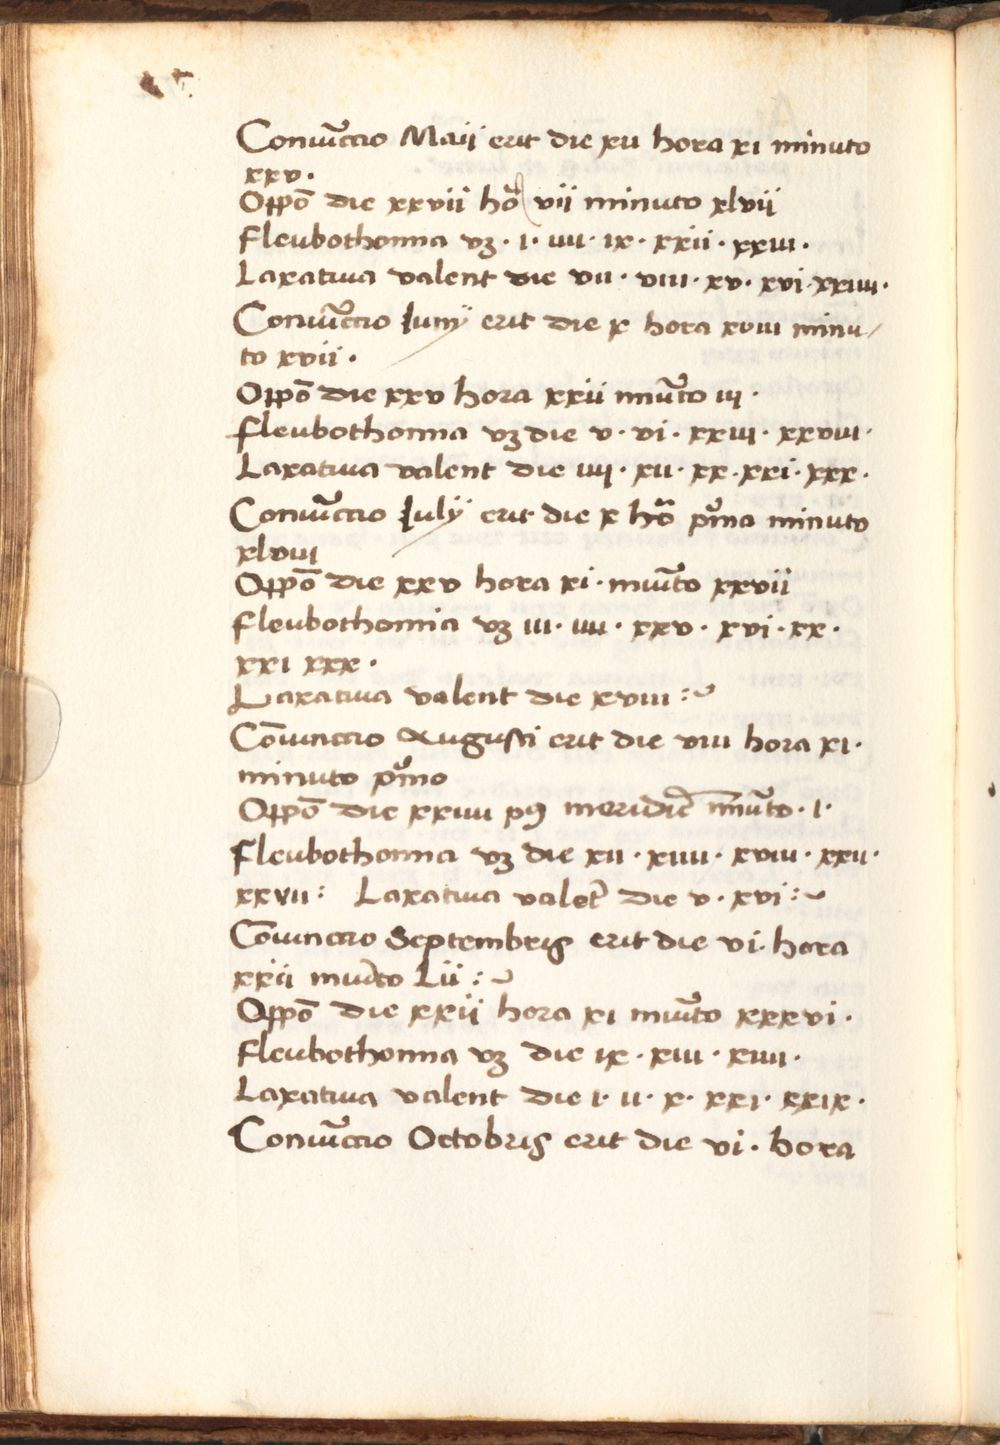 Coniu̅ccio Maii erit die xii hora xi minuto
xxv.
Oppo̅ die xxvii ho̅ vii minuto xlvii
fleubothomia vꝫ . i . iiii . ix . xxii . xxiii .
Laxativa valent die vii . viii . xv . xvi . xxiiii .
Coniu̅ccio Iunij erit die x hora xviii minu/
to xvii .
Oppo̅ die xxv hora xxii minu̅to iij .
fleubothomia vꝫ die v . vi . xxiii . xxviii .
Laxativa valent die iiij . xii . xx . xxi . xxx .
Coniu̅ccio Iulij erit die x ho̅ p̅ma minuto
xlviii
Oppo̅ die xxv hora xi . minu̅to xxvii
fleubothomia vꝫ iii . iiii . xxv . xvi . xx .
xxi xxx .
Laxativa valent die xviii :~
Co̅iunccio Augusti erit die viii hora xi .
minuto p̅mo
Oppo̅ die xxiiii pꝰ meridie̅ minu̅to . i .
fleubothomia vꝫ die xii . xiiii . xviii . xxii .
xxvii : Laxativa valet̅ die v . xvi :~
Co̅iunccio Septembris erit die vi . hora
xxii minu̅to Lii :~
Oppo̅ die xxii hora xi minu̅to xxxvi .
fleubothomia vꝫ die ix . xiii . xiiii .
Laxativa valent die i . ii . x . xxi . xxix .
Coniu̅ccio Octobris erit die vi . hora